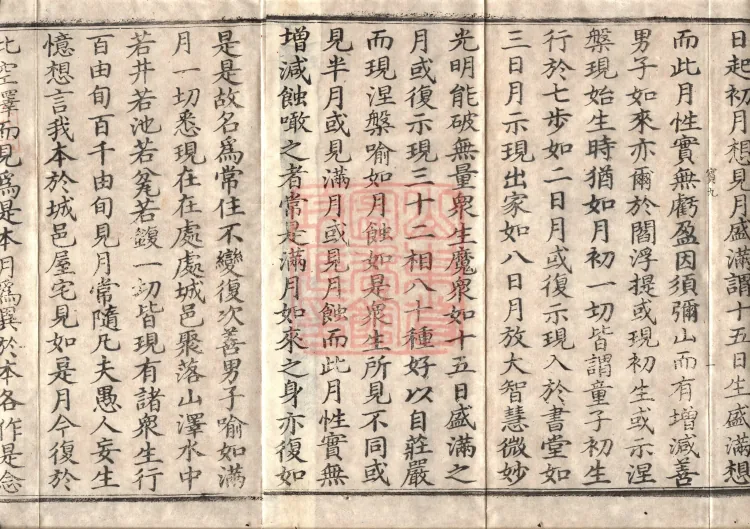 日起初月想見月盛滿謂十五日生盛滿想
而此月性實無虧盈因須彌山而有增減善
賓九
一
男子如來亦爾於閻浮提或現初生或示涅
槃現始生時猶如月初一切皆謂童子初生
行於七步如二日月或復示現入於書堂如
三日月示現出家如八日月放大智慧微妙
光明能破無量衆生魔衆如十五日盛滿之
月或復示現三十二相八十種好以自莊嚴
而現涅槃喻如月蝕如是衆生所見不同或
見半月或見滿月或見月蝕而此月性實無
增減蝕噉之者常是滿月如來之身亦復如
是是故名爲常住不變復次善男子喻如滿
月一切悉現在在處處城邑聚落山澤水中
若井若池若瓮若鍑一切皆現有諸衆生行
百由旬百千由旬見月常隨凡夫愚人妄生
憶想言我本於城邑屋宅見如是月今復於
此空澤而見爲是本月爲異於本各作是念